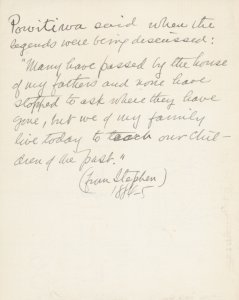 Powitiwa said when the
legends were being discussed:
"Many have passed by the house
of my fathers and none have
stopped to ask where they have
gone, but we of my family
live today to teach our chil-
dren of the past."
(from Stephen)
1884-5